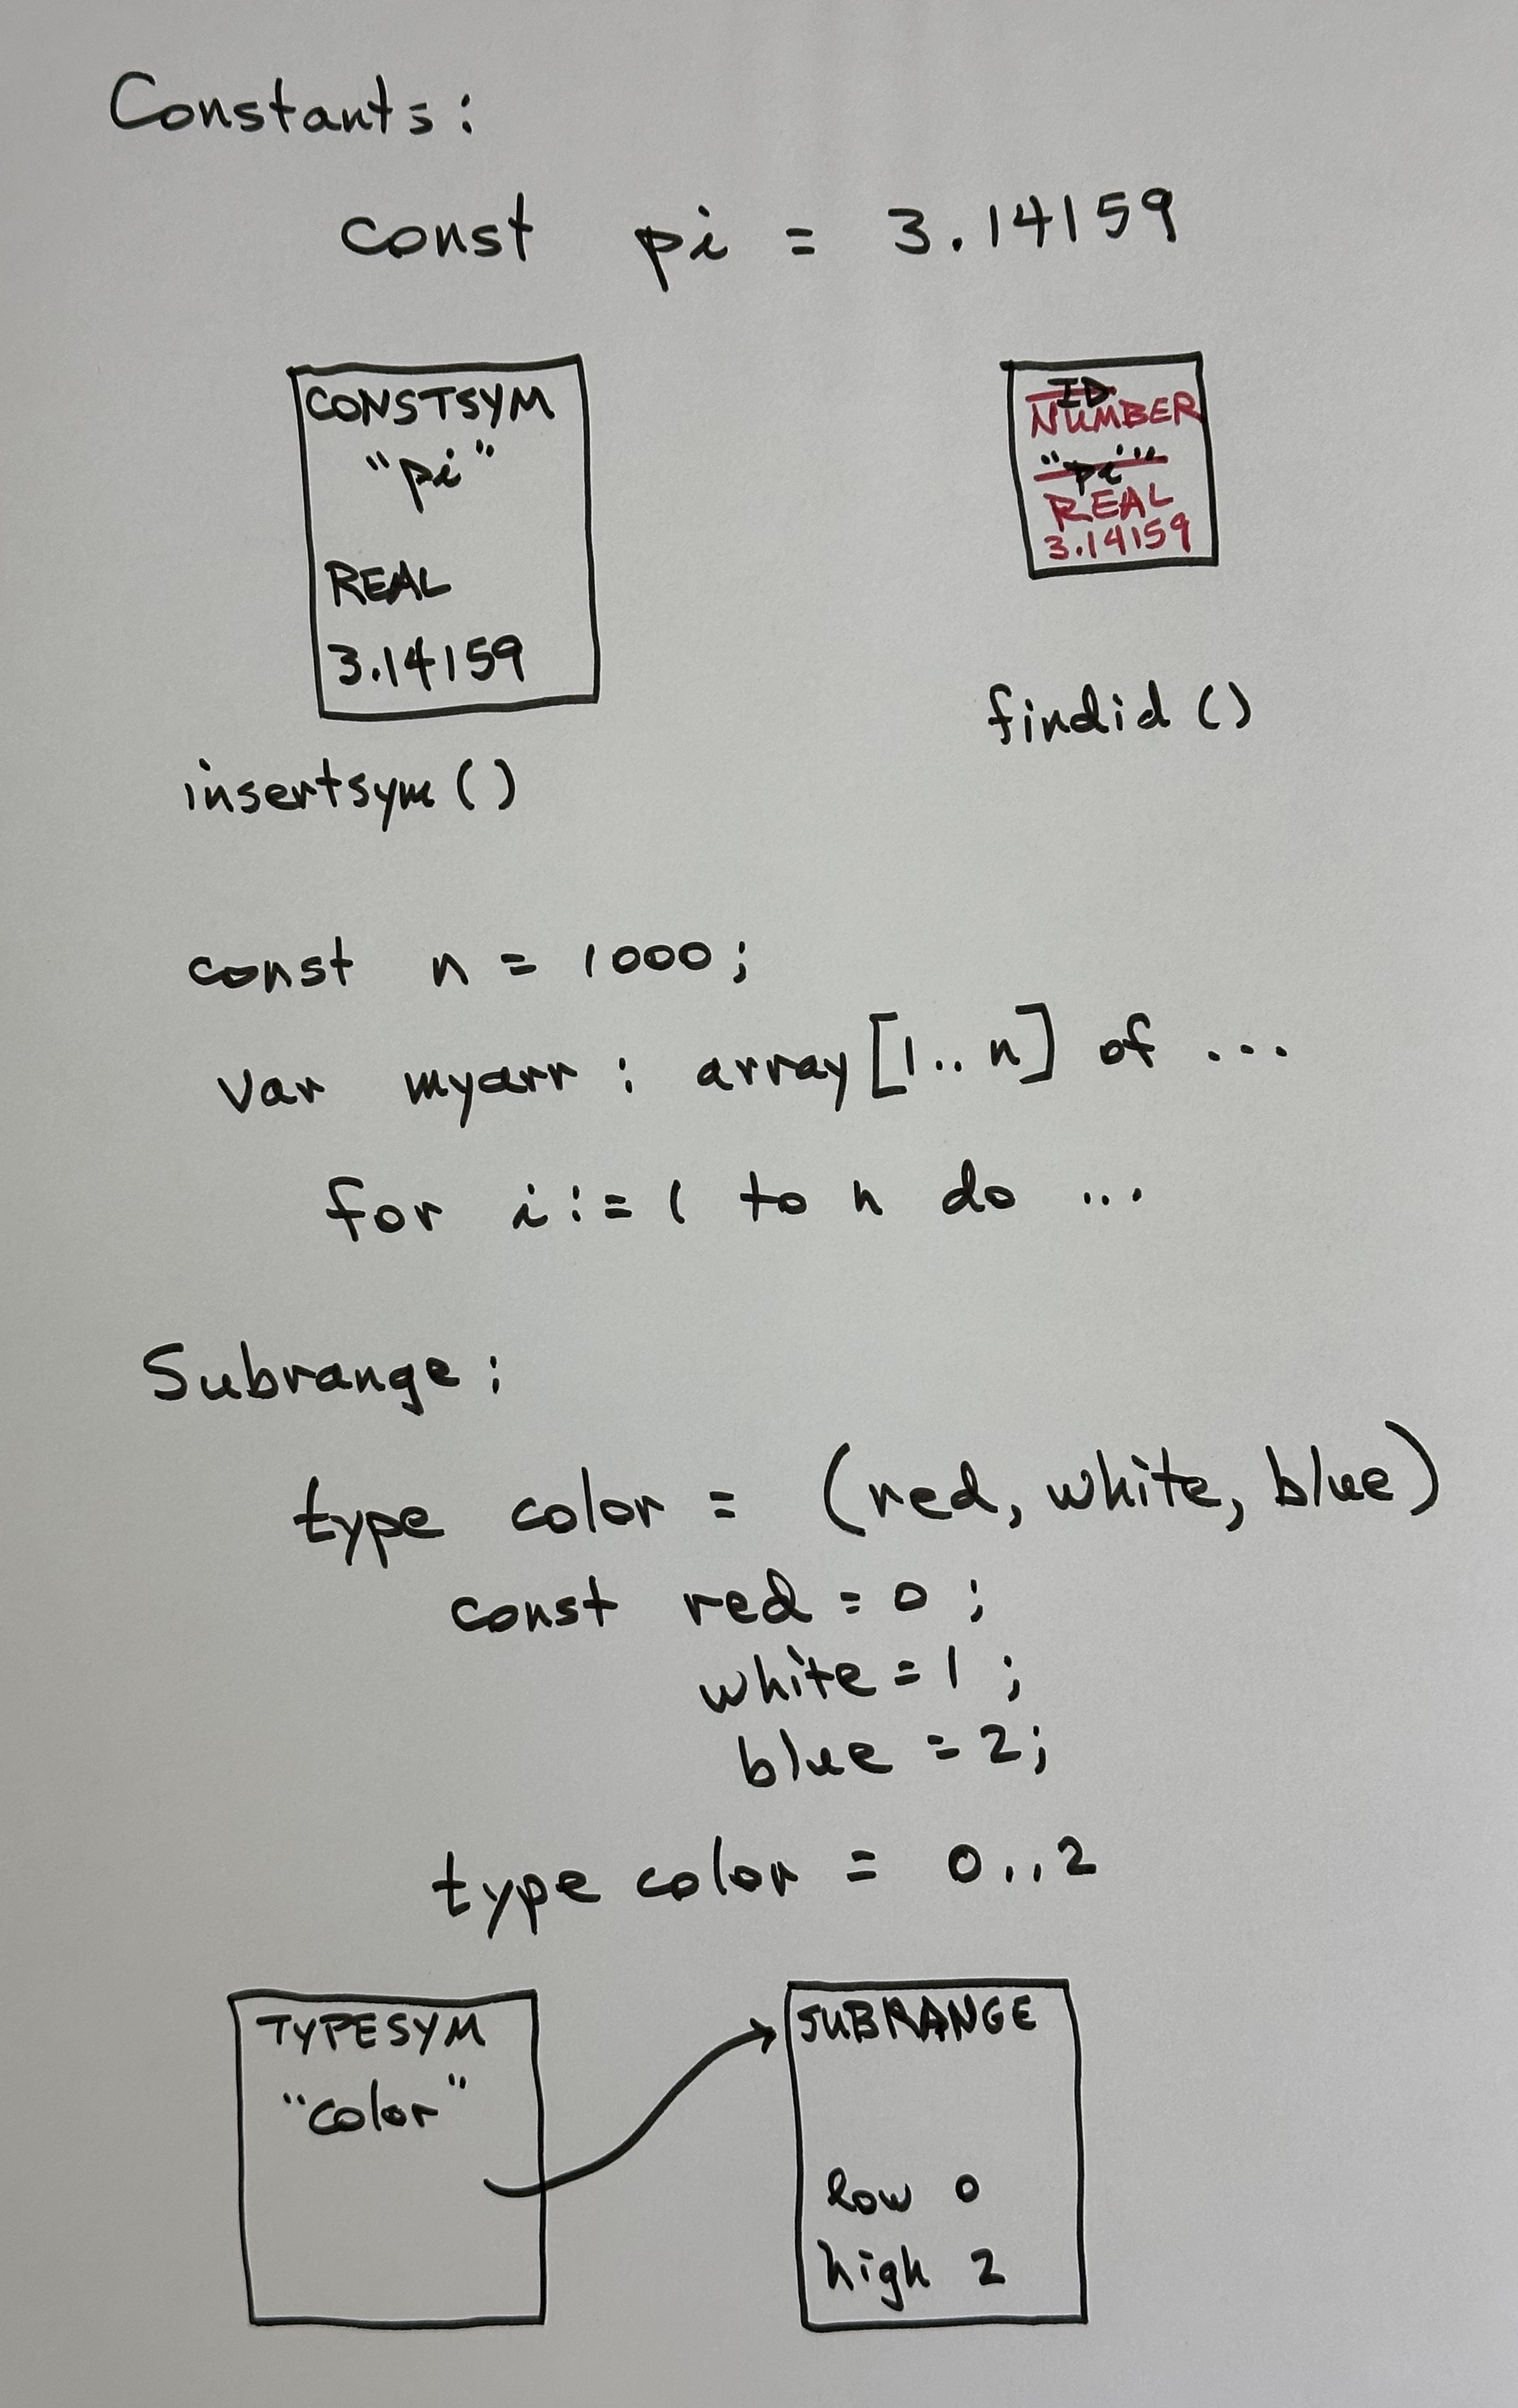 Constants:
const pi = 3.14159
CONSTSYM
"pi"
REAL
3.14159
insertsym()
ID
NUMBER
"pi"
REAL
3.14159
findid()
const n = 1000;
var myarr : array[1..n] of ...
for i:=1 to n do ...
Subrange:
type color = (red, white, blue)
const red = 0;
white = 1;
blue = 2;
type color = 0..2
TYPESYM
"color"
SUBRANGE
low 0
high 2